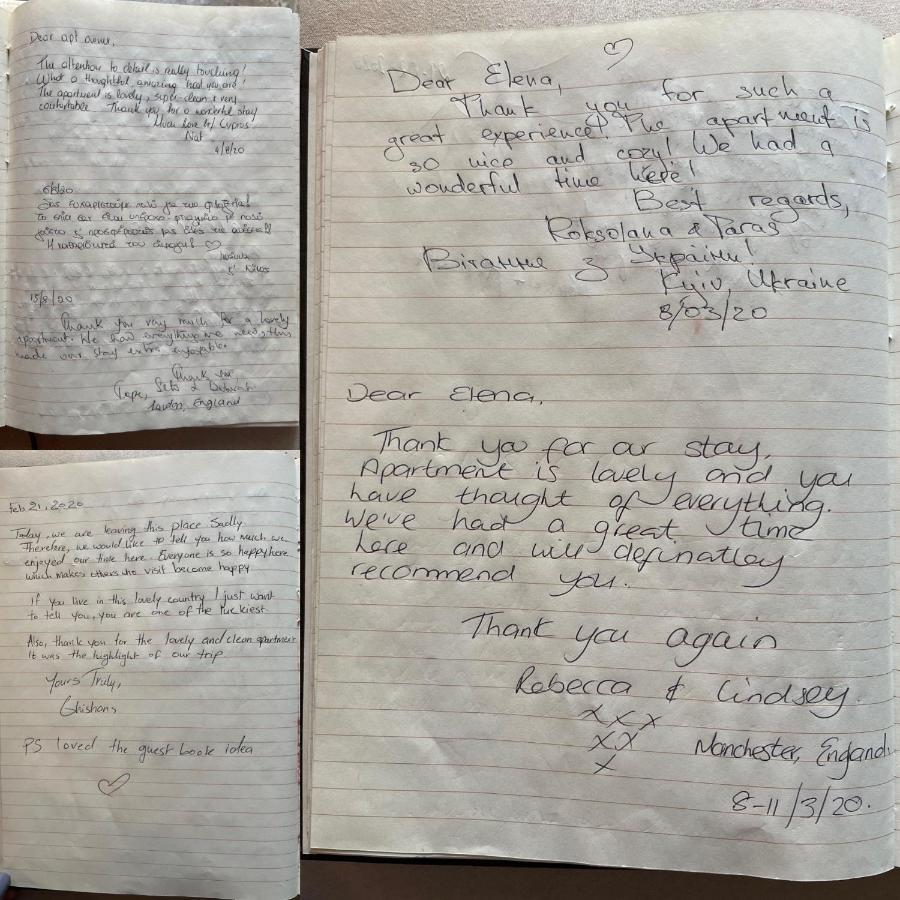 Dear apt owner,
The attention to detail is really touching!
What a thoughtful amazing host you are!
The apartment is lovely, super clean & very
comfortable. Thank you for a wonderful stay
Much love
Nat
4/8/20
6/8/20
Σας ευχαριστούμε πολύ για την φιλοξενία!
Το σπίτι σας είναι υπέροχο! με πολύ
γούστο
Η καθαριότητά του
& Νίκος
15/8/20
Thank you very much for a lovely
apartment. We had everything we need, this
made our stay extra enjoyable.
Thank you,
&
London, England
Feb 21, 2020
Today, we are leaving this place Sadly
Therefore, we would like to tell you how much we
enjoyed our time here. Everyone is so happy here
which makes others who visit become happy
If you live in this lovely country I just want
to tell you, you are one of the luckiest
Also, thank you for the lovely and clean apartment
It was the highlight of our trip
Yours Truly,
Ghishans
PS loved the guest book idea
Dear Elena,
Thank you for such a
great experience! The apartment is
so nice and cozy! We had a
wonderful time here!
Best regards,
Roksolana & Taras
Вітання з України!
Kyiv, Ukraine
8/03/20
Dear Elena,
Thank you for our stay,
Apartment is lovely and you
have thought of everything.
We've had a great time
here and will definatley
recommend you.
Thank you again
Rebecca & Lindsey.
x x x
x x
x
Manchester, England.
8-11/3/20.